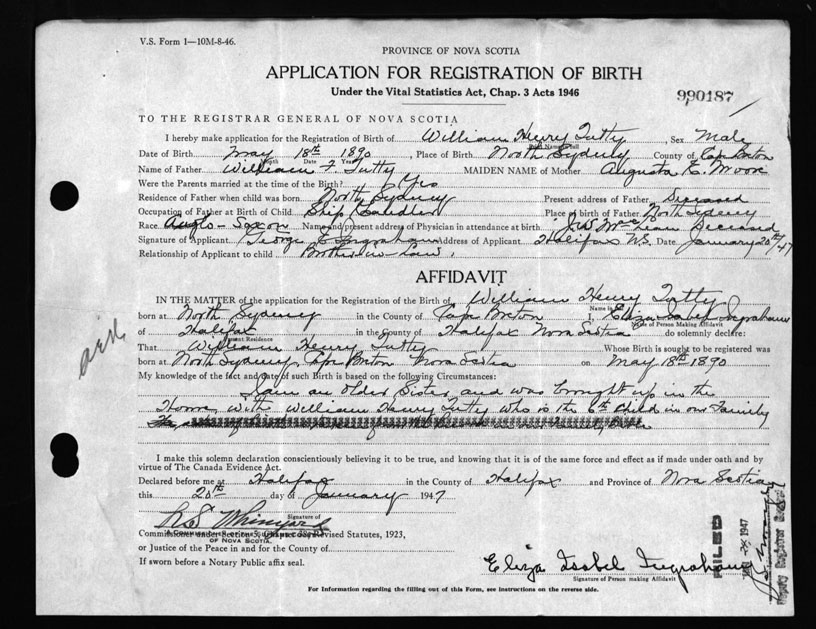 V.S. Form 1—10M-8-46.
PROVINCE OF NOVA SCOTIA
APPLICATION FOR REGISTRATION OF BIRTH
Under the Vital Statistics Act, Chap. 3 Acts 1946
990187
TO THE REGISTRAR GENERAL OF NOVA SCOTIA
I hereby make application for the Registration of Birth of William Henry Tutty, Sex Male
Print Name in Full
Date of Birth May 18th 1890, Place of Birth North Sydney County of Cape Breton
Month Date Year
Name of Father William F. Tutty MAIDEN NAME of Mother Augusta E. Moore
Were the Parents married at the time of the Birth? Yes
Residence of Father when child was born North Sydney Present address of Father Deceased
Occupation of Father at Birth of Child Ship Chandler Place of birth of Father North Sydney
Race Anglo-Saxon Name and present address of Physician in attendance at birth J.W. McLean Deceased
Signature of Applicant George E Ingraham Address of Applicant Halifax N.S. Date January 20th/47
Relationship of Applicant to child Brother-in-Law.
AFFIDAVIT
IN THE MATTER of the application for the Registration of the Birth of William Henry Tutty
born at North Sydney in the County of Cape Breton I, Eliza Isabel Ingraham
Name of Person Making Affidavit
of Halifax in the County of Halifax Nova Scotia do solemnly declare:
Present Residence
That William Henry Tutty Whose Birth is sought to be registered was
born at North Sydney, Cape Breton Nova Scotia on May 18th 1890
My knowledge of the fact and date of such Birth is based on the following Circumstances:
I am an older Sister and was brought up in the
Home With William Henry Tutty who is the 6th child in our Family
I make this solemn declaration conscientiously believing it to be true, and knowing that it is of the same force and effect as if made under oath and by
virtue of The Canada Evidence Act.
Declared before me at Halifax in the County of Halifax and Province of Nova Scotia
this 20th day of January 1947
Signature of
Commissioner under Section 5, Chapter 38, Revised Statutes, 1923,
OF NOVA SCOTIA.
or Justice of the Peace in and for the County of
If sworn before a Notary Public affix seal.
Eliza Isobel Ingraham
Signature of Person making Affidavit
For Information regarding the filling out of this Form, see instructions on the reverse side.
FILED
1947
Deputy Registrar General